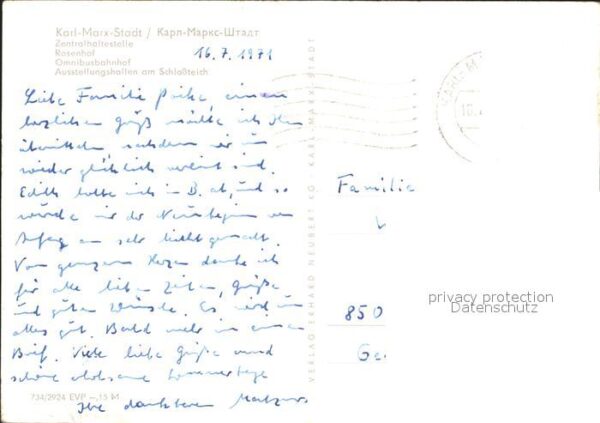 Karl-Marx-Stadt / Карл-Маркс-Штадт
Zentralhaltestelle
Rosenhof
Omnibusbahnhof
Ausstellungshallen am Schloßteich
16.7.1971
Liebe Familie einen
herzlichen Gruß möchte ich Ihnen
übermitteln nachdem wir nun
wieder glücklich vereint sind.
Edith holte mich in B. ab, und so
wurde mir der Neubeginn von
Anfang an sehr leicht gemacht.
Von ganzem Herzen danke ich
für alle lieben Zeilen, Grüße
und guten Wünsche. Es wird nun
alles gut. Bald mehr in einem
Brief. Viele liebe Grüße und
schöne erholsame Sommertage
Ihre dankbare
734/2924 EVP –,15 M
VERLAG ERHARD NEUBERT KG · KARL-MARX-STADT
KARL-M
Familie
850
Ge
privacy protection
Datenschutz